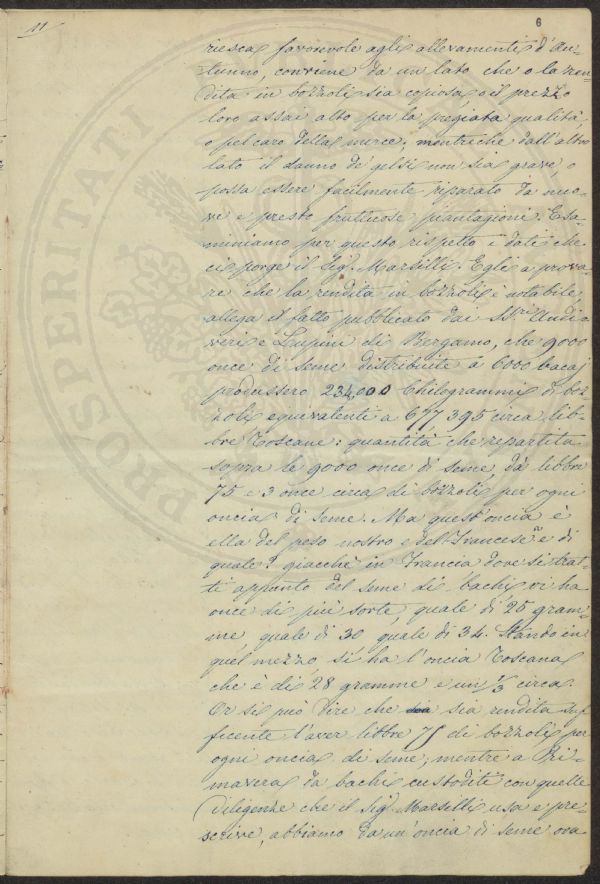 11
6
riesca favorevole agli allevamenti d'Au-
tunno, conviene da un lato che o la ren-
dita in bozzoli sia copiosa, o il prezzo
loro assai alto per la pregiata qualità
o pel caro della merce; mentreche dall'altro
lato il danno de' gelsi non sia grave, o
possa essere facilmente riparato da nuo-
ve e presto fruttuose piantagioni. Esa-
miniamo per questo rispetto i dati che
ci porge il Sig. Marsilli. Egli a prova-
re che la rendita in bozzoli è notabile,
allega il fatto pubblicato dai SS.ri
veri e Lupini di Bergamo, che 9000
once di seme distribuite a 6000 bacaj
produssero 234,000 Chilogrammi di boz-
zoli equivalenti a 677,395 circa lib-
bre Toscane: quantità che repartita
sopra le 9000 once di seme, dà libbre
75 e 3 once circa di bozzoli per ogni
oncia di seme. Ma quest'oncia è
ella del peso nostro e dell'Francese? e di
quale? giacchè in Francia dove si trat-
ti appunto del seme di bachi vi ha
once di più sorte, quale di 25 gram-
me, quale di 30 quale di 34. Stando in
quel mezzo, si ha l'oncia Toscana
che è di 28 gramme e un 1/3 circa.
Or si può dire che sia rendita suf-
ficente l'aver libbre 75 di bozzoli per
ogni oncia di seme; mentre a Pri-
mavera da bachi custoditi con quelle
diligenze che il Sig. Marselli usa e pre-
scrive, abbiamo da un'oncia di seme ora
PROSPERITATI